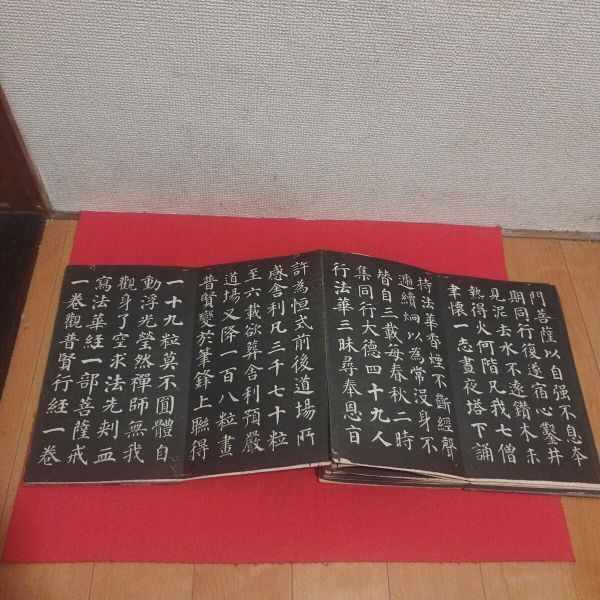 門菩薩以自强不息本
期同行復遂宿心鑿井
見泥去水不遠鑽木未
熱得火何階凡我七僧
聿懷一志晝夜塔下誦
持法華香煙不斷經聲
遞續炯以為常沒身不
替自三載每春秋二時
集同行大德四十九人
行法華三昧尋奉恩旨
許為恒式前後道場所
感舍利凡三千七十粒
至六載欲葬舍利預嚴
道場又降一百八粒畫
普賢變於筆鋒上聯得
一十九粒莫不圓體自
動浮光瑩然禪師無我
觀身了空求法先刺血
寫法華經一部菩薩戒
一卷觀普賢行經一卷